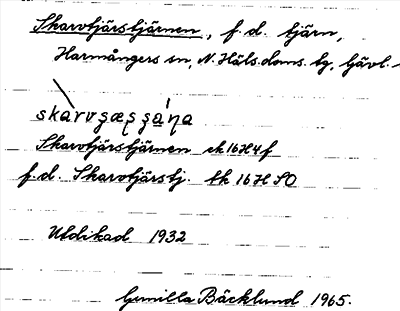 Skarvtjärstjärnen, f.d. tjärn,
Harmångers sn, N. Häls. doms. tg, Gävl.
skarvʂæʂʂa̱ṇa
Skarvtjärstjärnen ek 16H4f
f.d. Skarvtjärstj. tk 16H SO
Utdikad 1932
Gunilla Bäcklund 1965.